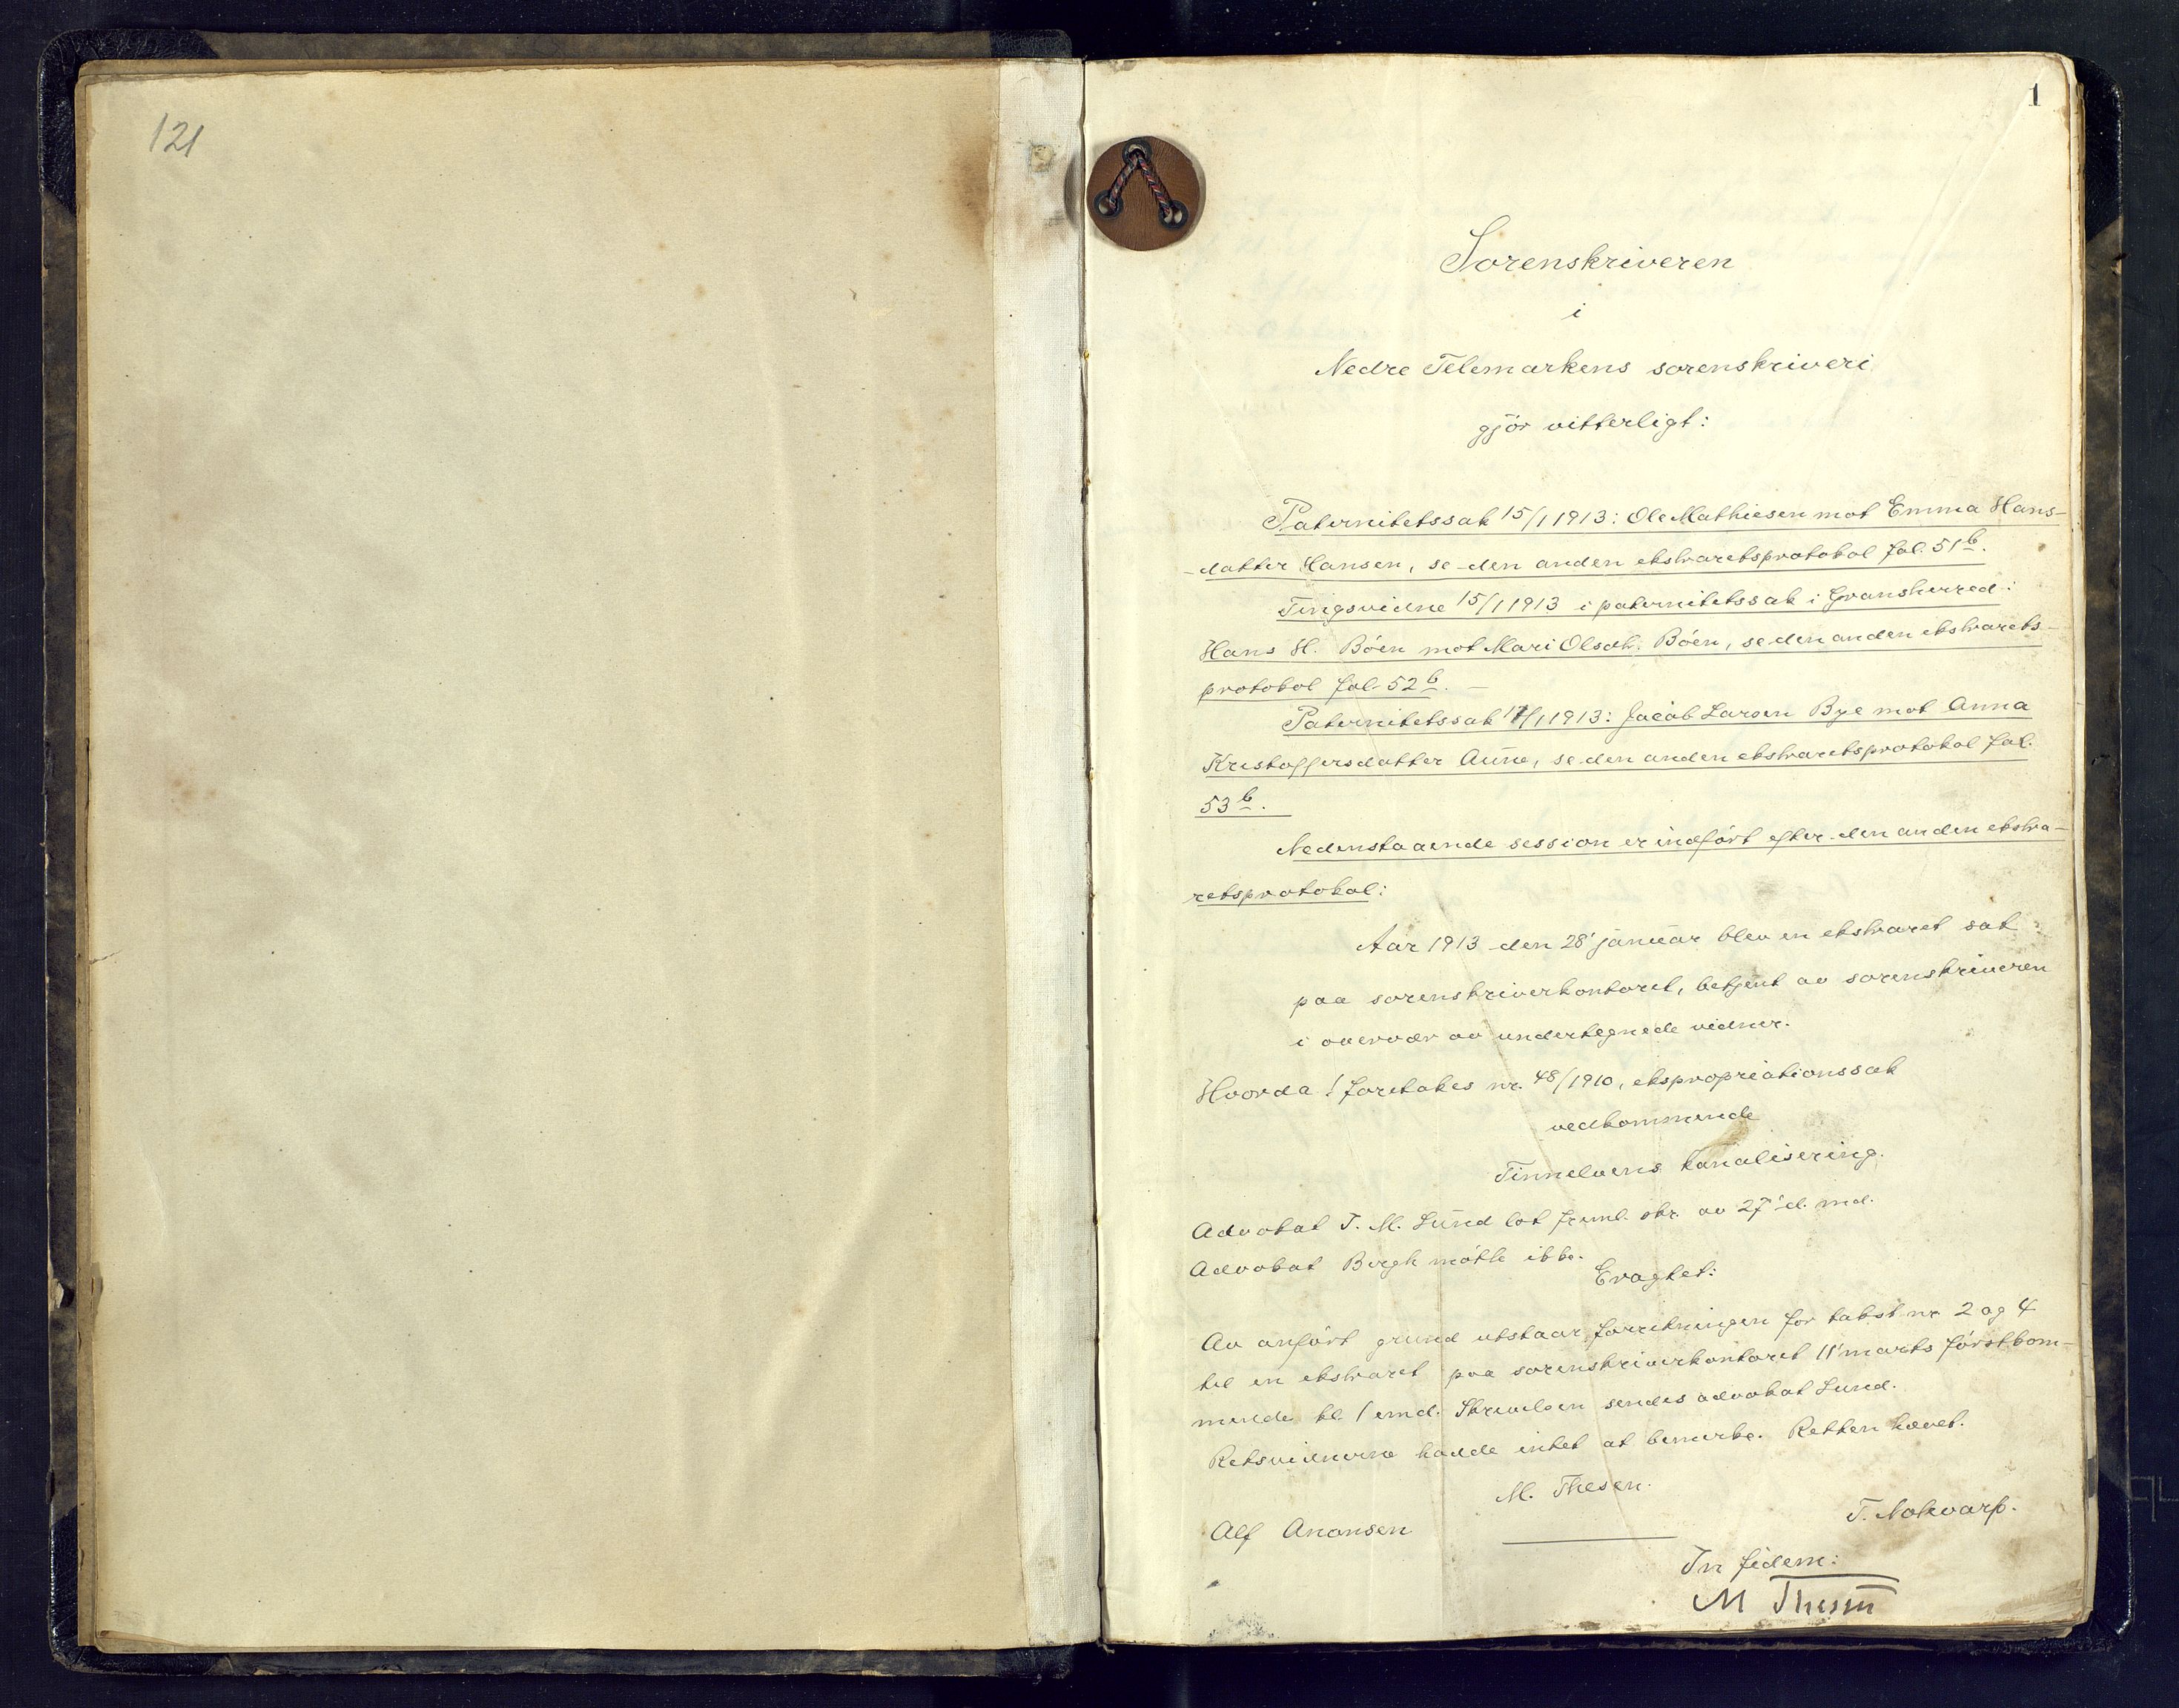 121
1
Sorenskriveren
i
Nedre Telemarkens sorenskriveri
gjør vitterligt:
Paternitetssak 15/1 1913: Ole Mathiesen mot Emma Hans-
-datter Hansen, se den anden ekstraretsprotokol fol. 51b.
Tingsvidne 15/1 1913 i paternitetssak i Gransherred:
Hans H. Bøen mot Mari Olsdtr. Bøen, se den anden ekstrarets-
protokol fol. 52b. –
Paternitetssak 17/1 1913: Jacob Larsen Bye mot Anna
Kristoffersdatter Aune, se den anden ekstraretsprotokol fol.
53b.
Nedenstaaende session er indført efter den anden ekstra-
retsprotokol:
Aar 1913 den 28' januar blev en ekstraret sat
paa sorenskriverkontoret, betjent av sorenskriveren
i overvær av undertegnede vidner.
Hvorda! foretokes nr. 48/1910, ekspropriationssak
vedkommende
Tinnelvens kanalisering.
Advokat T. M. Lund lot freml. skr. av 27' d. md.
Advokat Bergh møtte ikke.
Eragtet:
Av anført grund utstaar forretningen for takst nr 2 og 4
til en ekstraret paa sorenskriverkontoret 11' marts førstkom-
mende kl. 1 emd. Skrivelsen sendes advokat Lund.
Retsvidnerne hadde intet at bemerke. Retten hævet.
M. Thesen.
Alf Anonsen
T. Nokvarp.
In fidem:
M Thesen